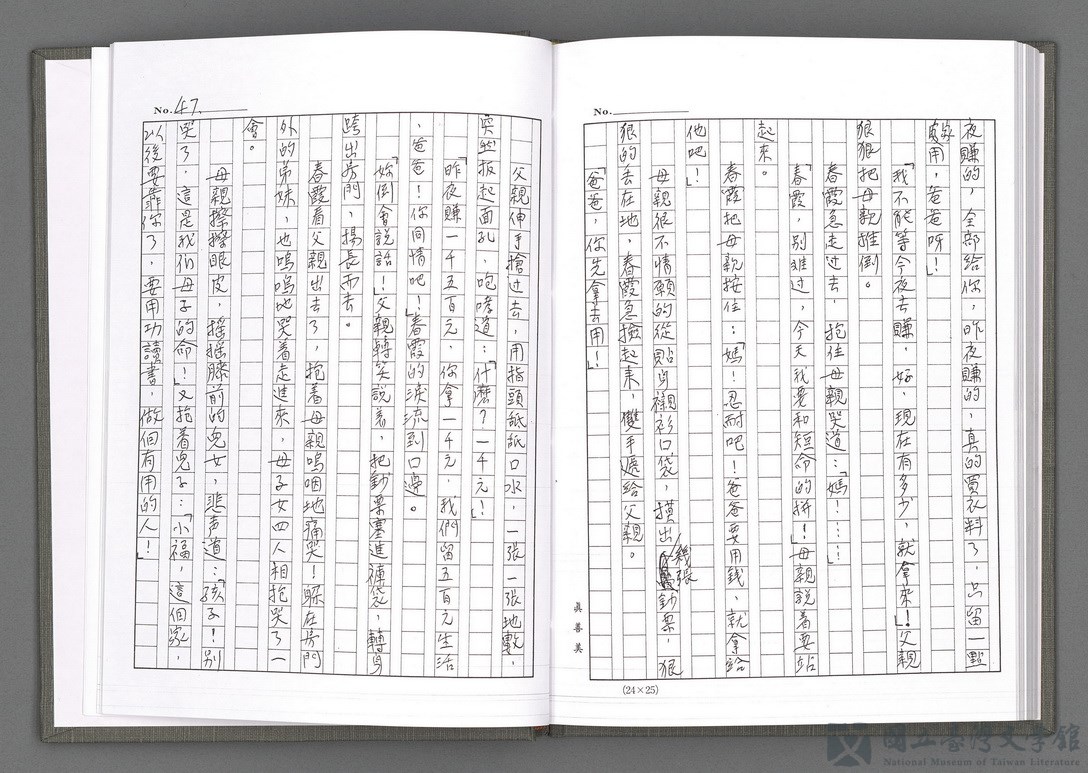 No.
夜賺的，全部給你，昨夜賺的，真的買衣料了，只留一點
家用，爸爸呀！」
「我不能等今夜去賺，好，現在有多少，就拿來！」父親
狠狠把母親推倒。
春霞急走过去，抱住母親哭道：「媽！……」
「春霞，别难过，今天我要和短命的拼！」母親說着要站
起來。
春霞把母親按住：「媽！忍耐吧！爸爸要用錢，就拿給
他吧！」
母親很不情願的從貼身襯衫口袋，摸出幾張鈔票，狠
狠的丢在地，春霞急撿起来，雙手遞給父親。
「爸爸，你先拿去用！」
真善美
(24×25)
No. 47.
父親伸手搶过去，用指頭舐舐口水，一張一張地數，
突然扳起面孔，咆哮道：「什麼？一千元！」
「昨夜賺一千五百元，你拿一千元，我們留五百元生活
，爸爸！你同情吧！」春霞的淚流到口邊。
「妳倒會說話！」父親轉笑說着，把鈔票塞進褲袋，轉身
跨出房門，揚長而去。
春霞看父親出去了，抱着母親嗚咽地痛哭！躲在房門
外的弟妹，也嗚嗚地哭着走進來，母子女四人相抱哭了一
會。
母親擦擦眼皮，摇摇膝前的兒女，悲声道：「孩子！别
哭了，這是我们母子的命！」又抱着兒子：「小福，這個家，
以後要靠你了，要用功讀書，做個有用的人！」
國立臺灣文學館
National Museum of Taiwan Literature